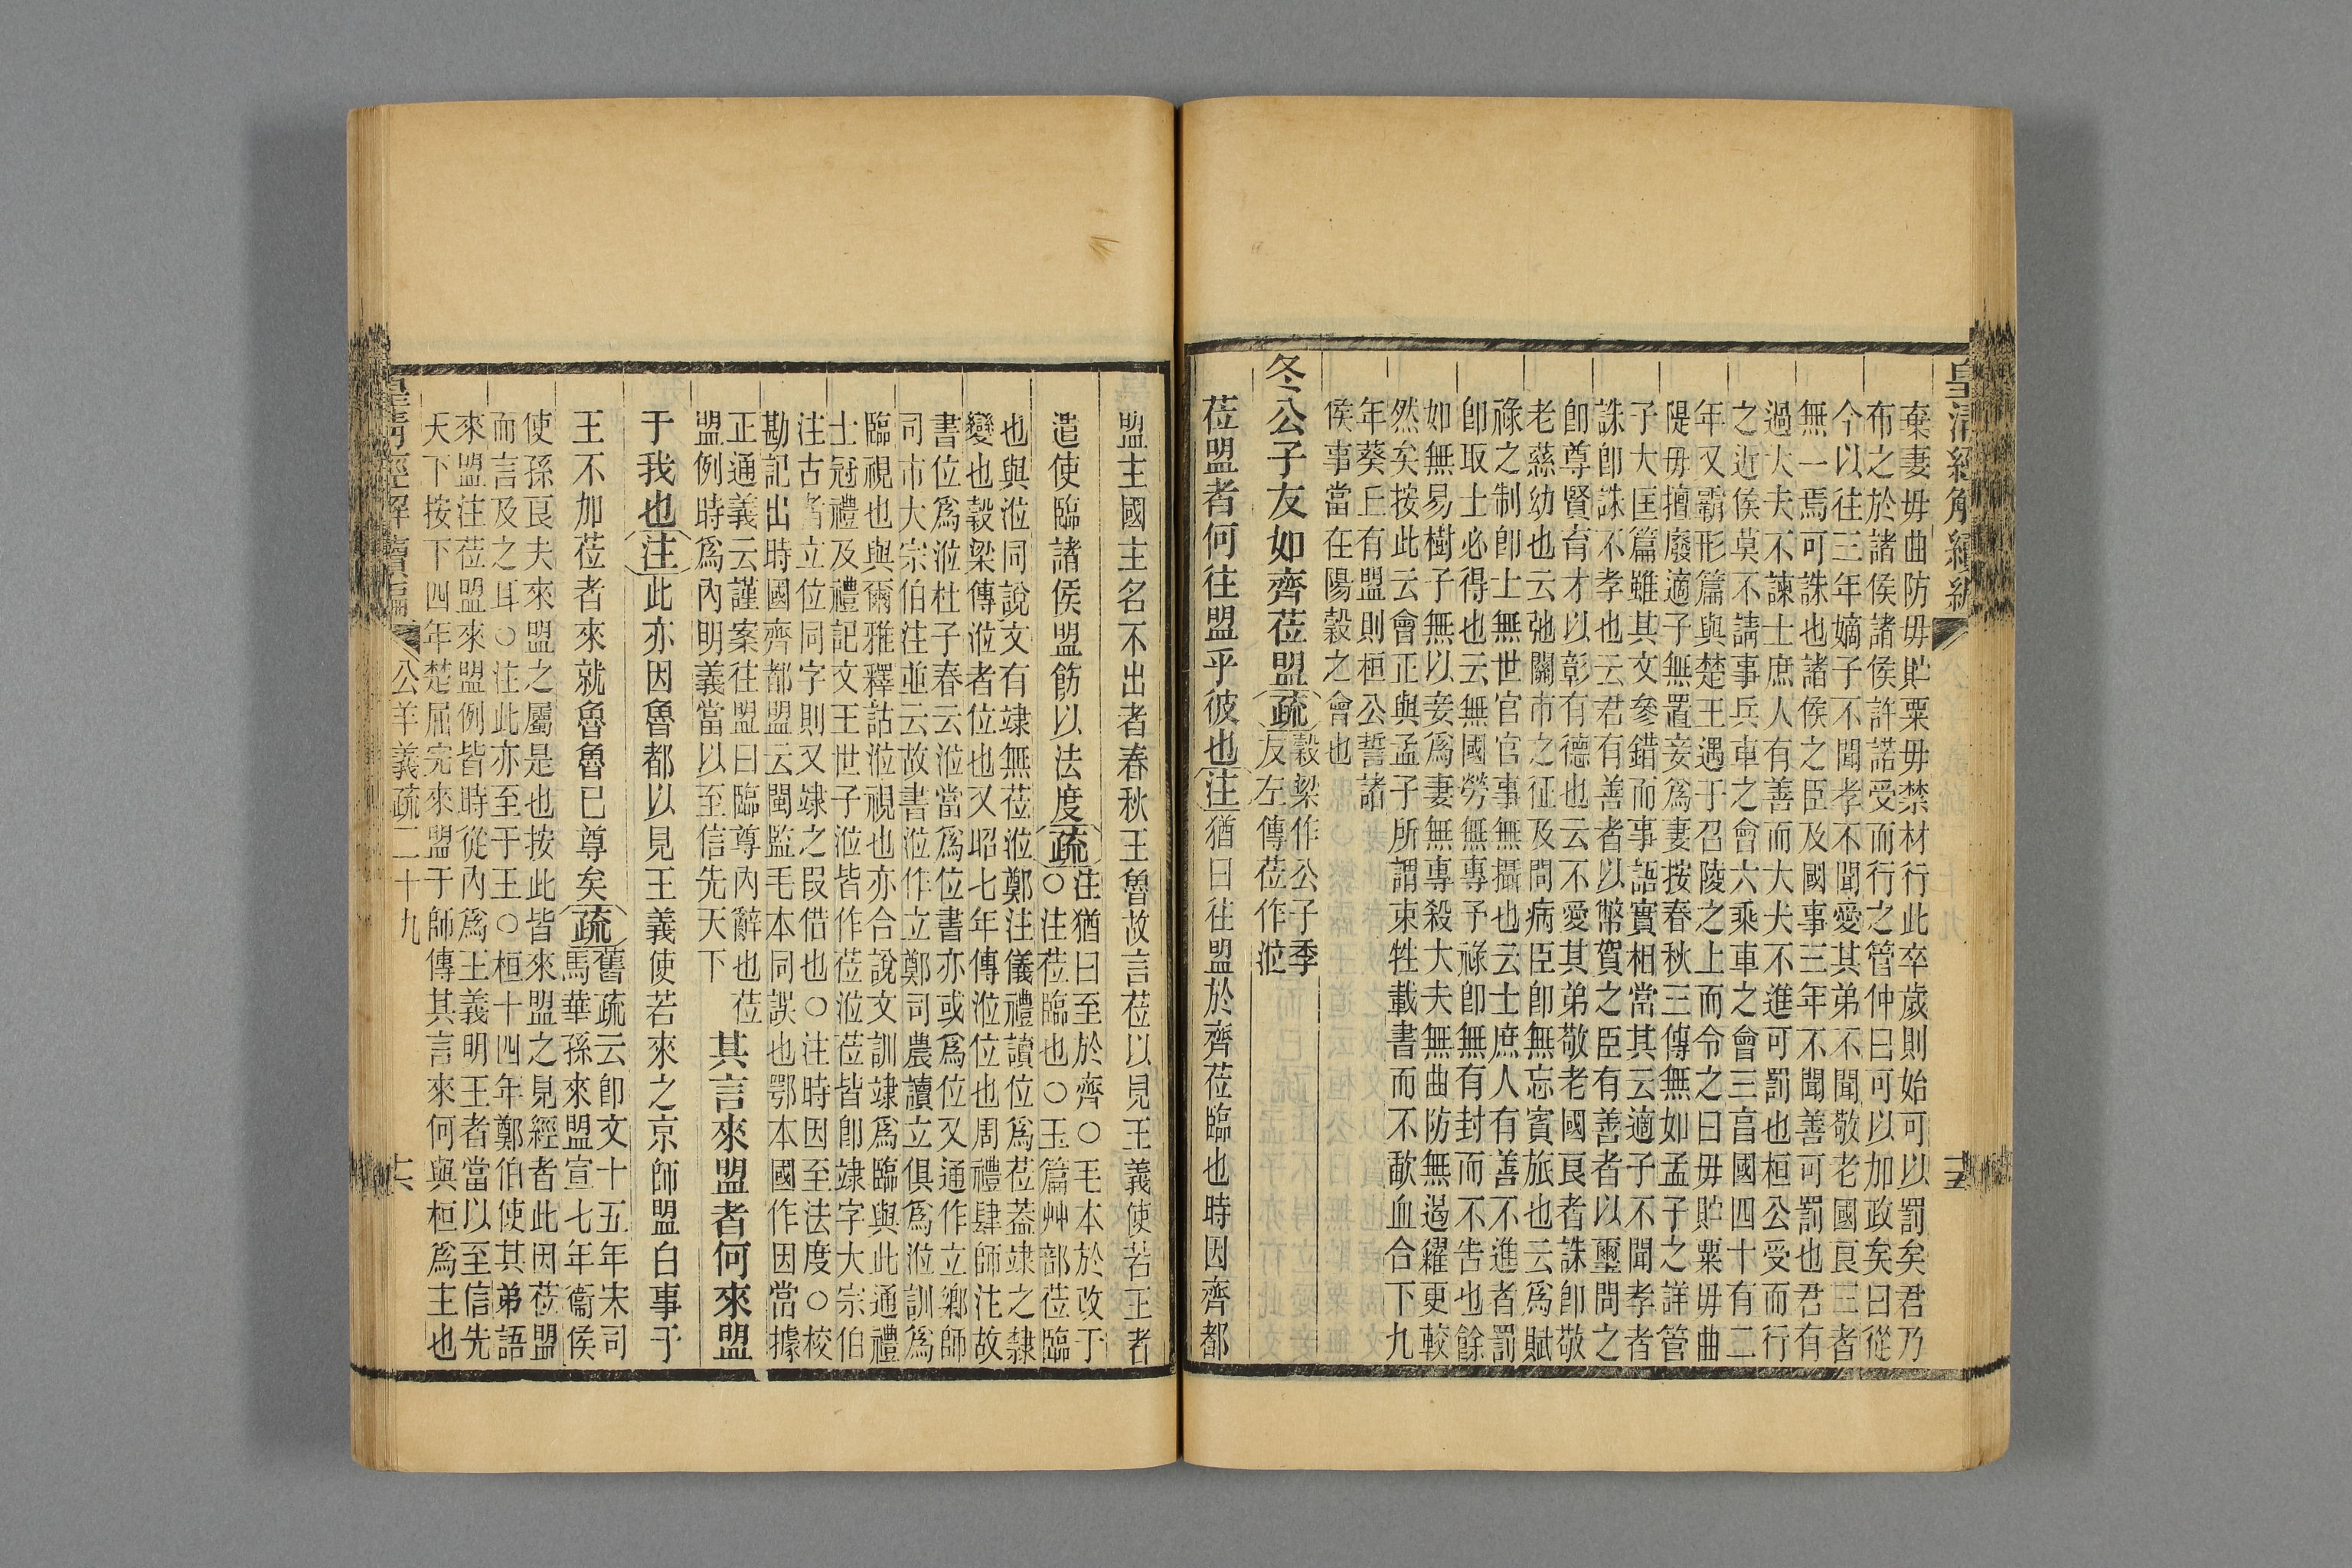 皇清經解續編
棄妻毋曲防毋貯粟毋禁材行此卒歲則始可以罰矣君乃
布之於諸侯諸侯許諾受而行之管仲曰可以加政矣曰從
今以往三年嫡子不聞孝不聞愛其弟不聞敬老國良三者
無一焉可誅也諸侯之臣及國事三年不聞善可罰也君有
過大夫不諫士庶人有善而大夫不進可罰也桓公受而行
之近侯莫不請事兵車之會六乘車之會三亯國四十有二
年又霸形篇與楚王遇于召陵之上而令之曰毋貯粟毋曲
隄毋擅廢適子無置妾爲妻按春秋三傳無如孟子之詳管
子大匡篇雖其文參錯而事語實相當其云適子不聞孝者
誅卽誅不孝也云君有善者以幣賀之臣有善者以璽問之
卽尊賢育才以彰有德也云不愛其弟敬老國良者誅卽敬
老慈幼也云弛關市之征及問病臣卽無忘賓旅也云爲賦
祿之制卽士無世官官事無攝也云士庶人有善不進者罰
卽取士必得也云無國勞無專予祿卽無有封而不告也餘
如無易樹子無以妾爲妻無專殺大夫無曲防無遏糴更較
然矣按此云會正與孟子所謂束牲載書而不歃血合下九
年葵丘有盟則桓公誓諸
侯事當在陽穀之會也
冬公子友如齊莅盟疏穀梁作公子季
友左傳莅作涖
莅盟者何往盟乎彼也注猶曰往盟於齊莅臨也時因齊都
十五
盟主國主名不出者春秋王魯故言莅以見王義使若王者
遣使臨諸侯盟飭以法度疏注猶曰至於齊○毛本於改于
○注莅臨也○玉篇艸部莅臨
也與涖同說文有竦無莅涖鄭注儀禮讀位爲莅葢竦之隸
變也穀梁傳涖者位也又昭七年傳涖位也周禮肆師注故
書位爲涖杜子春云涖當爲位書亦或爲位又通作立鄉師
司市大宗伯注並云故書涖作立鄭司農讀立俱爲涖訓爲
臨視也與爾雅釋詁涖視也亦合說文訓竦爲臨與此通禮
士冠禮及禮記文王世子涖皆作莅涖莅皆卽竦字大宗伯
注古者立位同字則又竦之叚借也○注時因至法度○校
勘記出時國齊都盟云閩監毛本同誤也鄂本國作因當據
正通義云謹案往盟曰臨尊內辭也莅
盟例時爲內明義當以至信先天下
其言來盟者何來盟
于我也注此亦因魯都以見王義使若來之京師盟白事于
王不加莅者來就魯魯已尊矣疏舊疏云卽文十五年宋司
馬華孫來盟宣七年衞侯
使孫良夫來盟之屬是也按此皆來盟之見經者此因莅盟
而言及之耳○注此亦至于王○桓十四年鄭伯使其弟語
來盟注莅盟來盟例皆時從內爲王義明王者當以至信先
天下按下四年楚屈完來盟于師傳其言來何與桓爲主也
皇清經解續編
公羊義疏二十九
十六